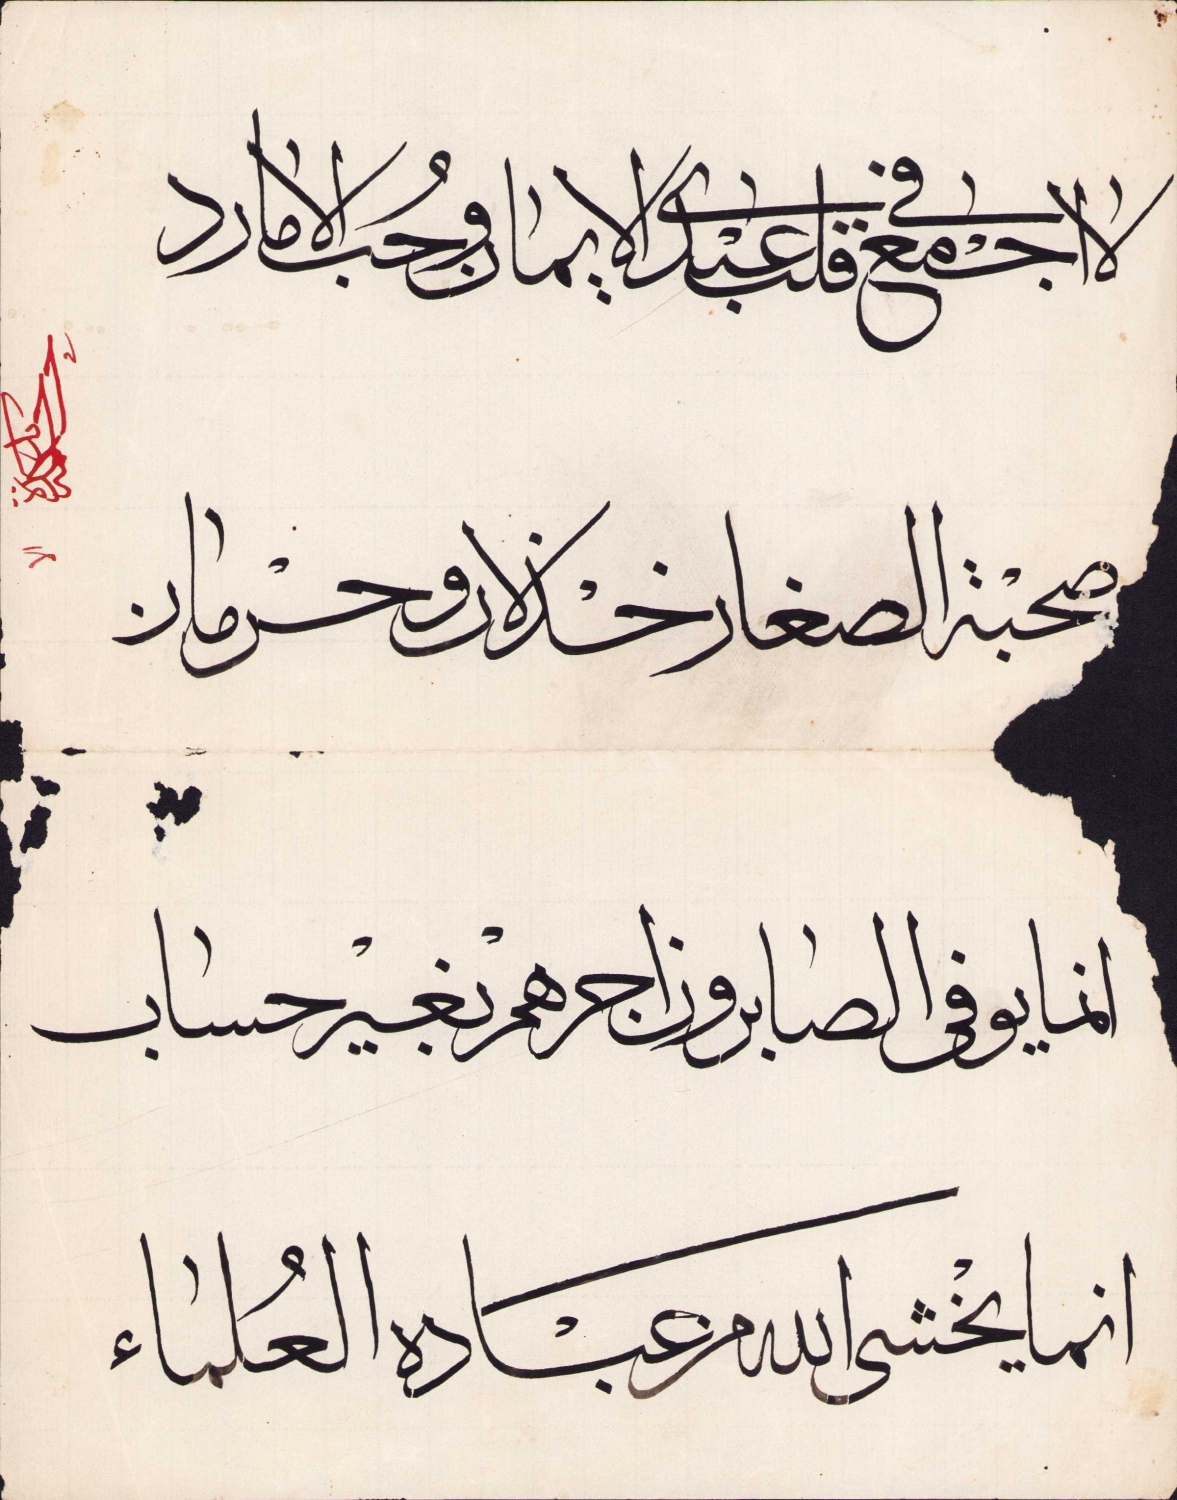 لا اجمع في قلب عبدي الايمان وحُب الامارد
صحبة الصغار خذلان وحرمان
انما يوفى الصابرون اجرهم بغير حساب
انما يخشى الله من عباده العُلماء